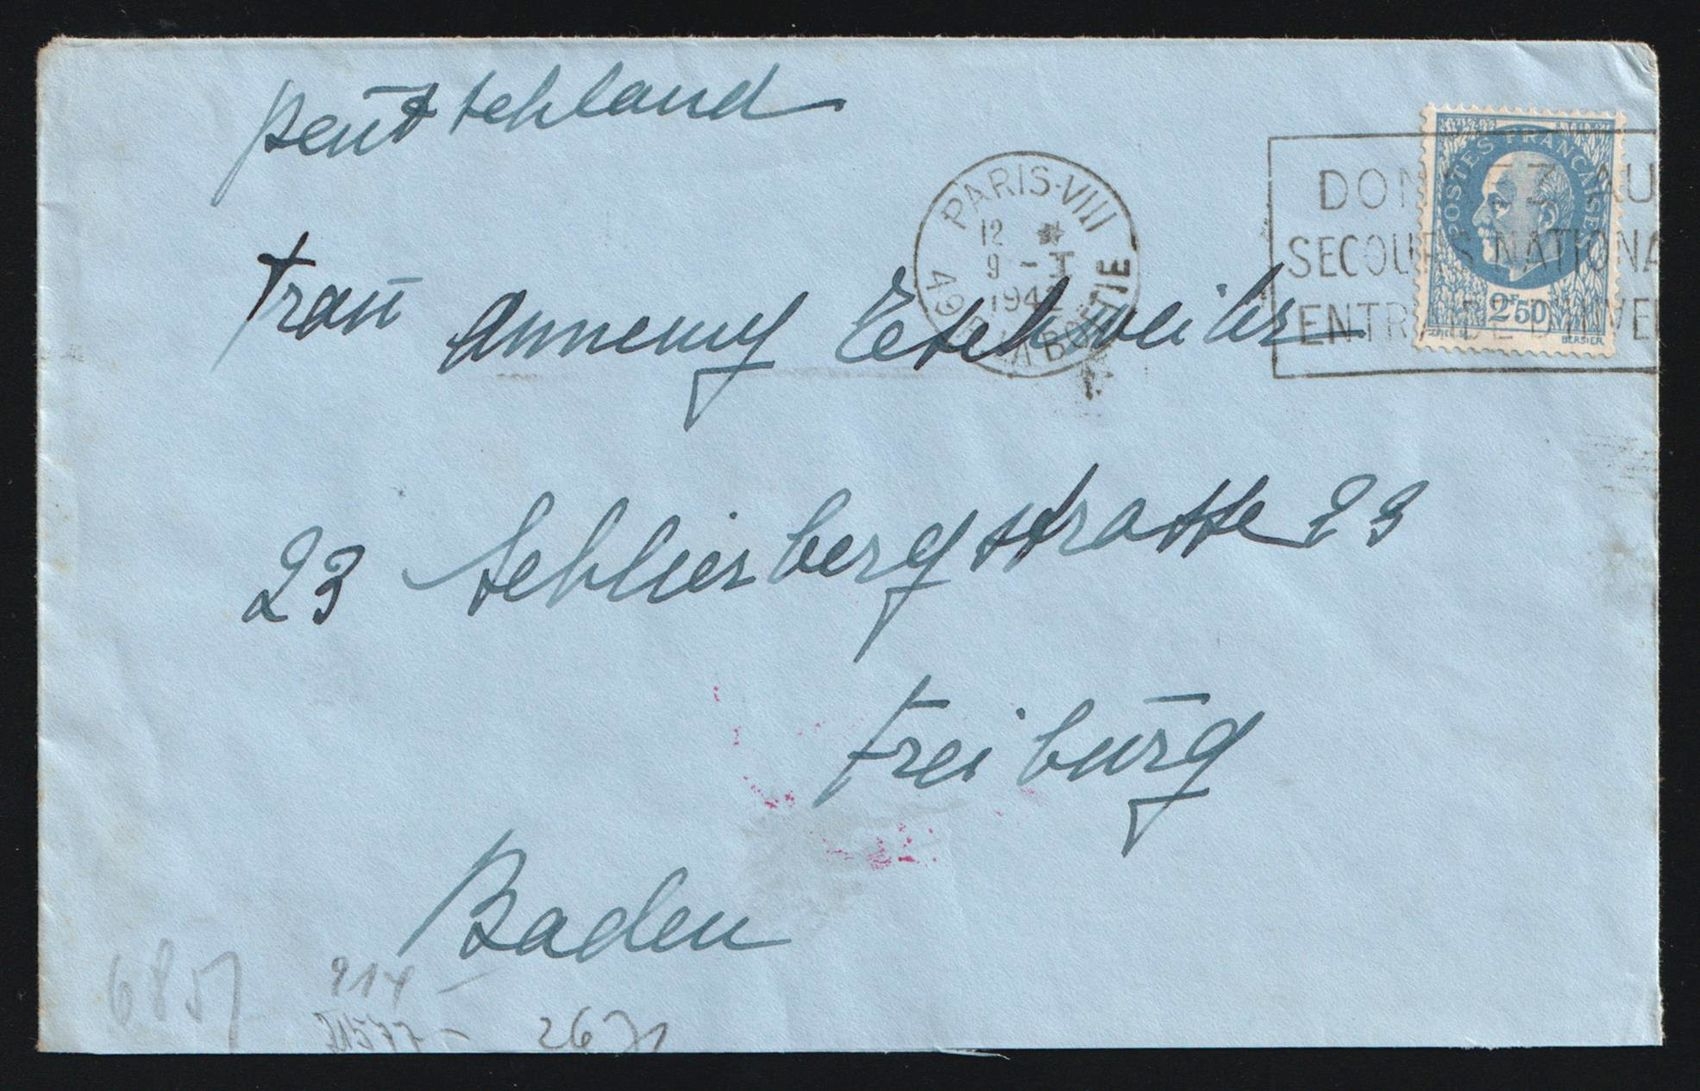 Deutschland
PARIS-VIII
12 *
9 - I
194
49 R. LA BOETIE
DONNEZ AU
SECOURS NATIONA
ENTR'AIDE D'HIVE
POSTES FRANÇAISES
2F50
BERSIER
Frau Annemy Eschweiler
23 Schlierbergstrasse 23
Freiburg
Baden
6857
914 -
577 -
2671